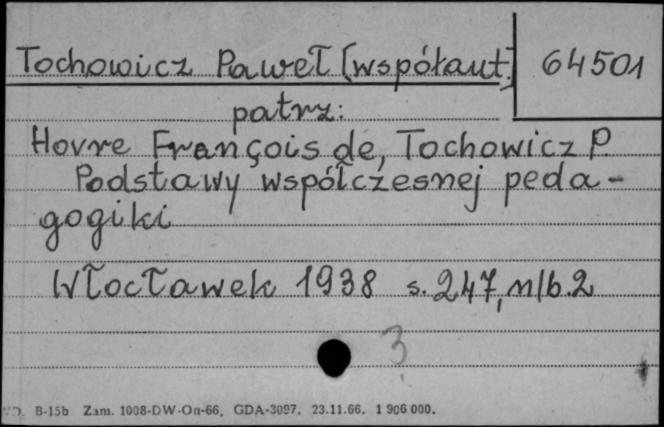 Tochowicz Paweł [współaut.] 64501
patrz:
Hovre François de, Tochowicz P.
Podstawy współczesnej peda-
gogiki
Włocławek 1938 s. 247, nlb. 2
3
B-15b Zam. 1008-DW-On-66. GDA-3097. 23.11.66. 1 906 000.